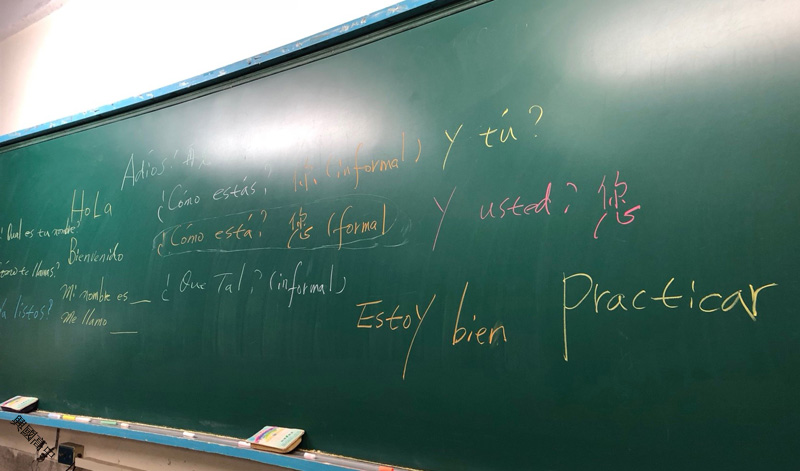 Adiós!
HoLa
¿Cual es tu nombre?
Bienvenido
Cómo te llamas?
Mi nombre es __
Me llamo ___
listos?
¿Cómo estás? (informal)
¿Cómo está? 您 (formal
¿Que Tal? (informal)
y tú?
y usted? 您
Estoy bien
Practicar